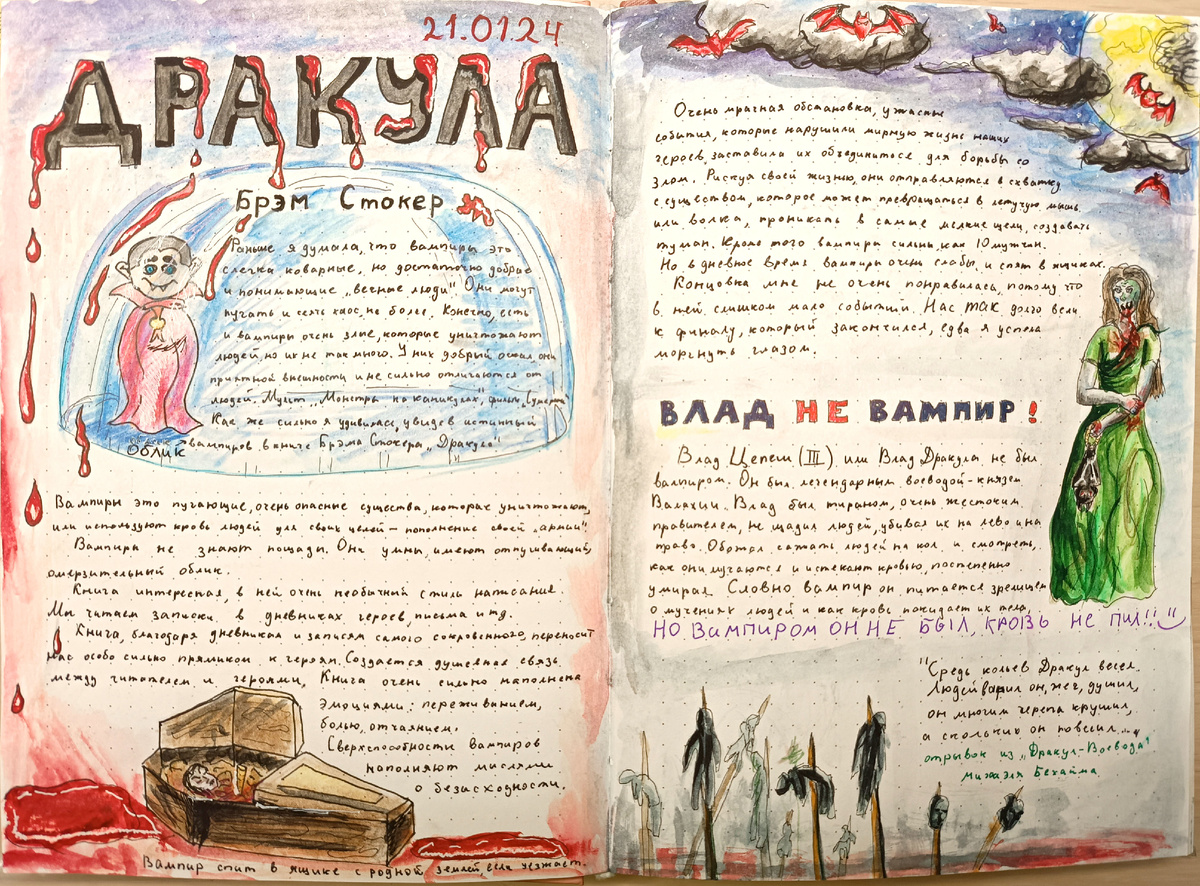 21.01.24
ДРАКУЛА
Брэм Стокер
Раньше я думала, что вампиры это
слегка коварные, но достаточно добрые
и понимающие „вечные люди". Они могут
пугать и сеять хаос, не более. Конечно, есть
и вампиры очень злые, которые уничтожают
людей, но их не так много. У них добрый оскал, они
приятной внешности и не сильно отличаются от
людей. Мульт „Монстры на каникулах", фильм „Сумерки"
Как же сильно я удивилась, увидев истинный
облик вампиров в книге Брэма Стокера „Дракула"
Вампиры это пугающие, очень опасные существа, которые уничтожают,
или используют кровь людей для своих целей – пополнение своей „армии".
Вампиры не знают пощады. Они умны, имеют отпугивающий,
омерзительный облик.
Книга интересная, в ней очень необычный стиль написания.
Мы читаем записки в дневниках героев, письма и тд.
Книга, благодаря дневникам и записям самого сокровенного, переносит
нас особо сильно прямиком к героям. Создается душевная связь
между читателем и героями, Книга очень сильно наполнена
эмоциями: переживанием,
болью, отчаянием.
Сверхспособности вампиров
наполняют мыслями
о безысходности.
Вампир спит в ящике с родной землей, если уезжает.
Очень мрачная обстановка, ужасные
события, которые нарушили мирную жизнь наших
героев, заставила их объединиться для борьбы со
злом. Рискуя своей жизнью, они отправляются в схватку
с существом, которое может превращаться в летучую мышь
или волка, проникать в самые мелкие щели, создавать
туман. Кроме того вампиры сильны, как 10 мужчин.
Но, в дневное время вампиры очень слабы, и спят в ящиках.
Концовка мне не очень понравилась, потому что
в ней слишком мало событий. Нас так долго вели
к финалу, который закончился, едва я успела
моргнуть глазом.
ВЛАД НЕ ВАМПИР!
Влад Цепеш (III) или Влад Дракула не был
вампиром. Он был легендарным воеводой-князем
Валахии. Влад был тираном, очень жестоким
правителем, не щадил людей, убивая их на лево и на
право. Обожал сажать людей на кол и смотреть,
как они мучаются и истекают кровью, постепенно
умирая. Словно вампир он питается зрелищем
о мучениях людей и как кровь покидает их тело,
НО ВАМПИРОМ ОН НЕ БЫЛ, КРОВЬ НЕ ПИЛ!!
"Средь кольев Дракул весел
Людей варил он, жег, душил,
он многим черепа крушил,
а скольких он повесил..."
отрывок из „Дракул-Воевода"
Михаэля Бехайма